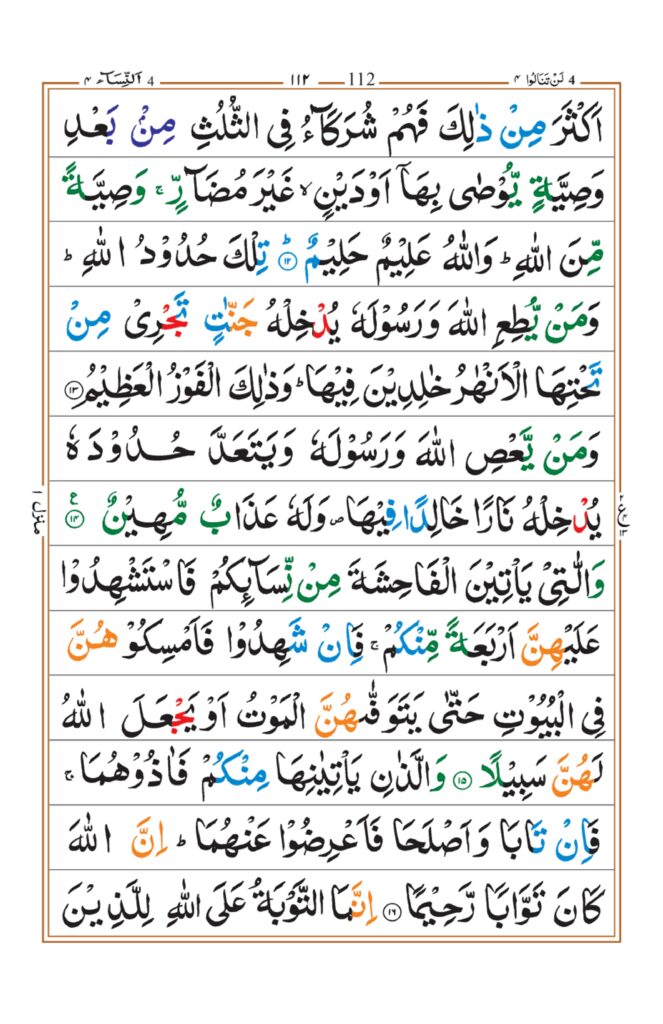 لَنْ تَنَالُوا ٤ 4 112 ١١٢ اَلنِّسَآء ٤ 4
اَكْثَرَ مِنْ ذٰلِكَ فَهُمْ شُرَكَآءُ فِى الثُّلُثِ مِنْۢ بَعْدِ
وَصِيَّةٍ يُّوْصٰى بِهَاۤ اَوْدَيْنٍ ۙ غَيْرَ مُضَآرٍّ ۚ وَصِيَّةً
مِّنَ اللّٰهِ ؕ وَاللّٰهُ عَلِيْمٌ حَلِيْمٌ ؕ ﴿۱۲﴾ تِلْكَ حُدُوْدُ اللّٰهِ ؕ
وَمَنْ يُّطِعِ اللّٰهَ وَرَسُوْلَهٗ يُدْخِلْهُ جَنّٰتٍ تَجْرِىْ مِنْ
تَحْتِهَا الْاَنْهٰرُ خٰلِدِيْنَ فِيْهَا ؕ وَذٰلِكَ الْفَوْزُ الْعَظِيْمُ ﴿۱۳﴾
وَمَنْ يَّعْصِ اللّٰهَ وَرَسُوْلَهٗ وَيَتَعَدَّ حُدُوْدَهٗ
يُدْخِلْهُ نَارًا خَالِدًا فِيْهَا ۖ وَلَهٗ عَذَابٌ مُّهِيْنٌ ﴿۱۴﴾ ع
وَالّٰتِىْ يَاْتِيْنَ الْفَاحِشَةَ مِنْ نِّسَآئِكُمْ فَاسْتَشْهِدُوْا
عَلَيْهِنَّ اَرْبَعَةً مِّنْكُمْ ۚ فَاِنْ شَهِدُوْا فَاَمْسِكُوْهُنَّ
فِى الْبُيُوْتِ حَتّٰى يَتَوَفّٰٮهُنَّ الْمَوْتُ اَوْ يَجْعَلَ اللّٰهُ
لَهُنَّ سَبِيْلًا ﴿۱۵﴾ وَالَّذٰنِ يَاْتِيٰنِهَا مِنْكُمْ فَاٰذُوْهُمَا ۚ
فَاِنْ تَابَا وَاَصْلَحَا فَاَعْرِضُوْا عَنْهُمَا ؕ اِنَّ اللّٰهَ
كَانَ تَوَّابًا رَّحِيْمًا ﴿۱۶﴾ اِنَّمَا التَّوْبَةُ عَلَى اللّٰهِ لِلَّذِيْنَ
منزل ١